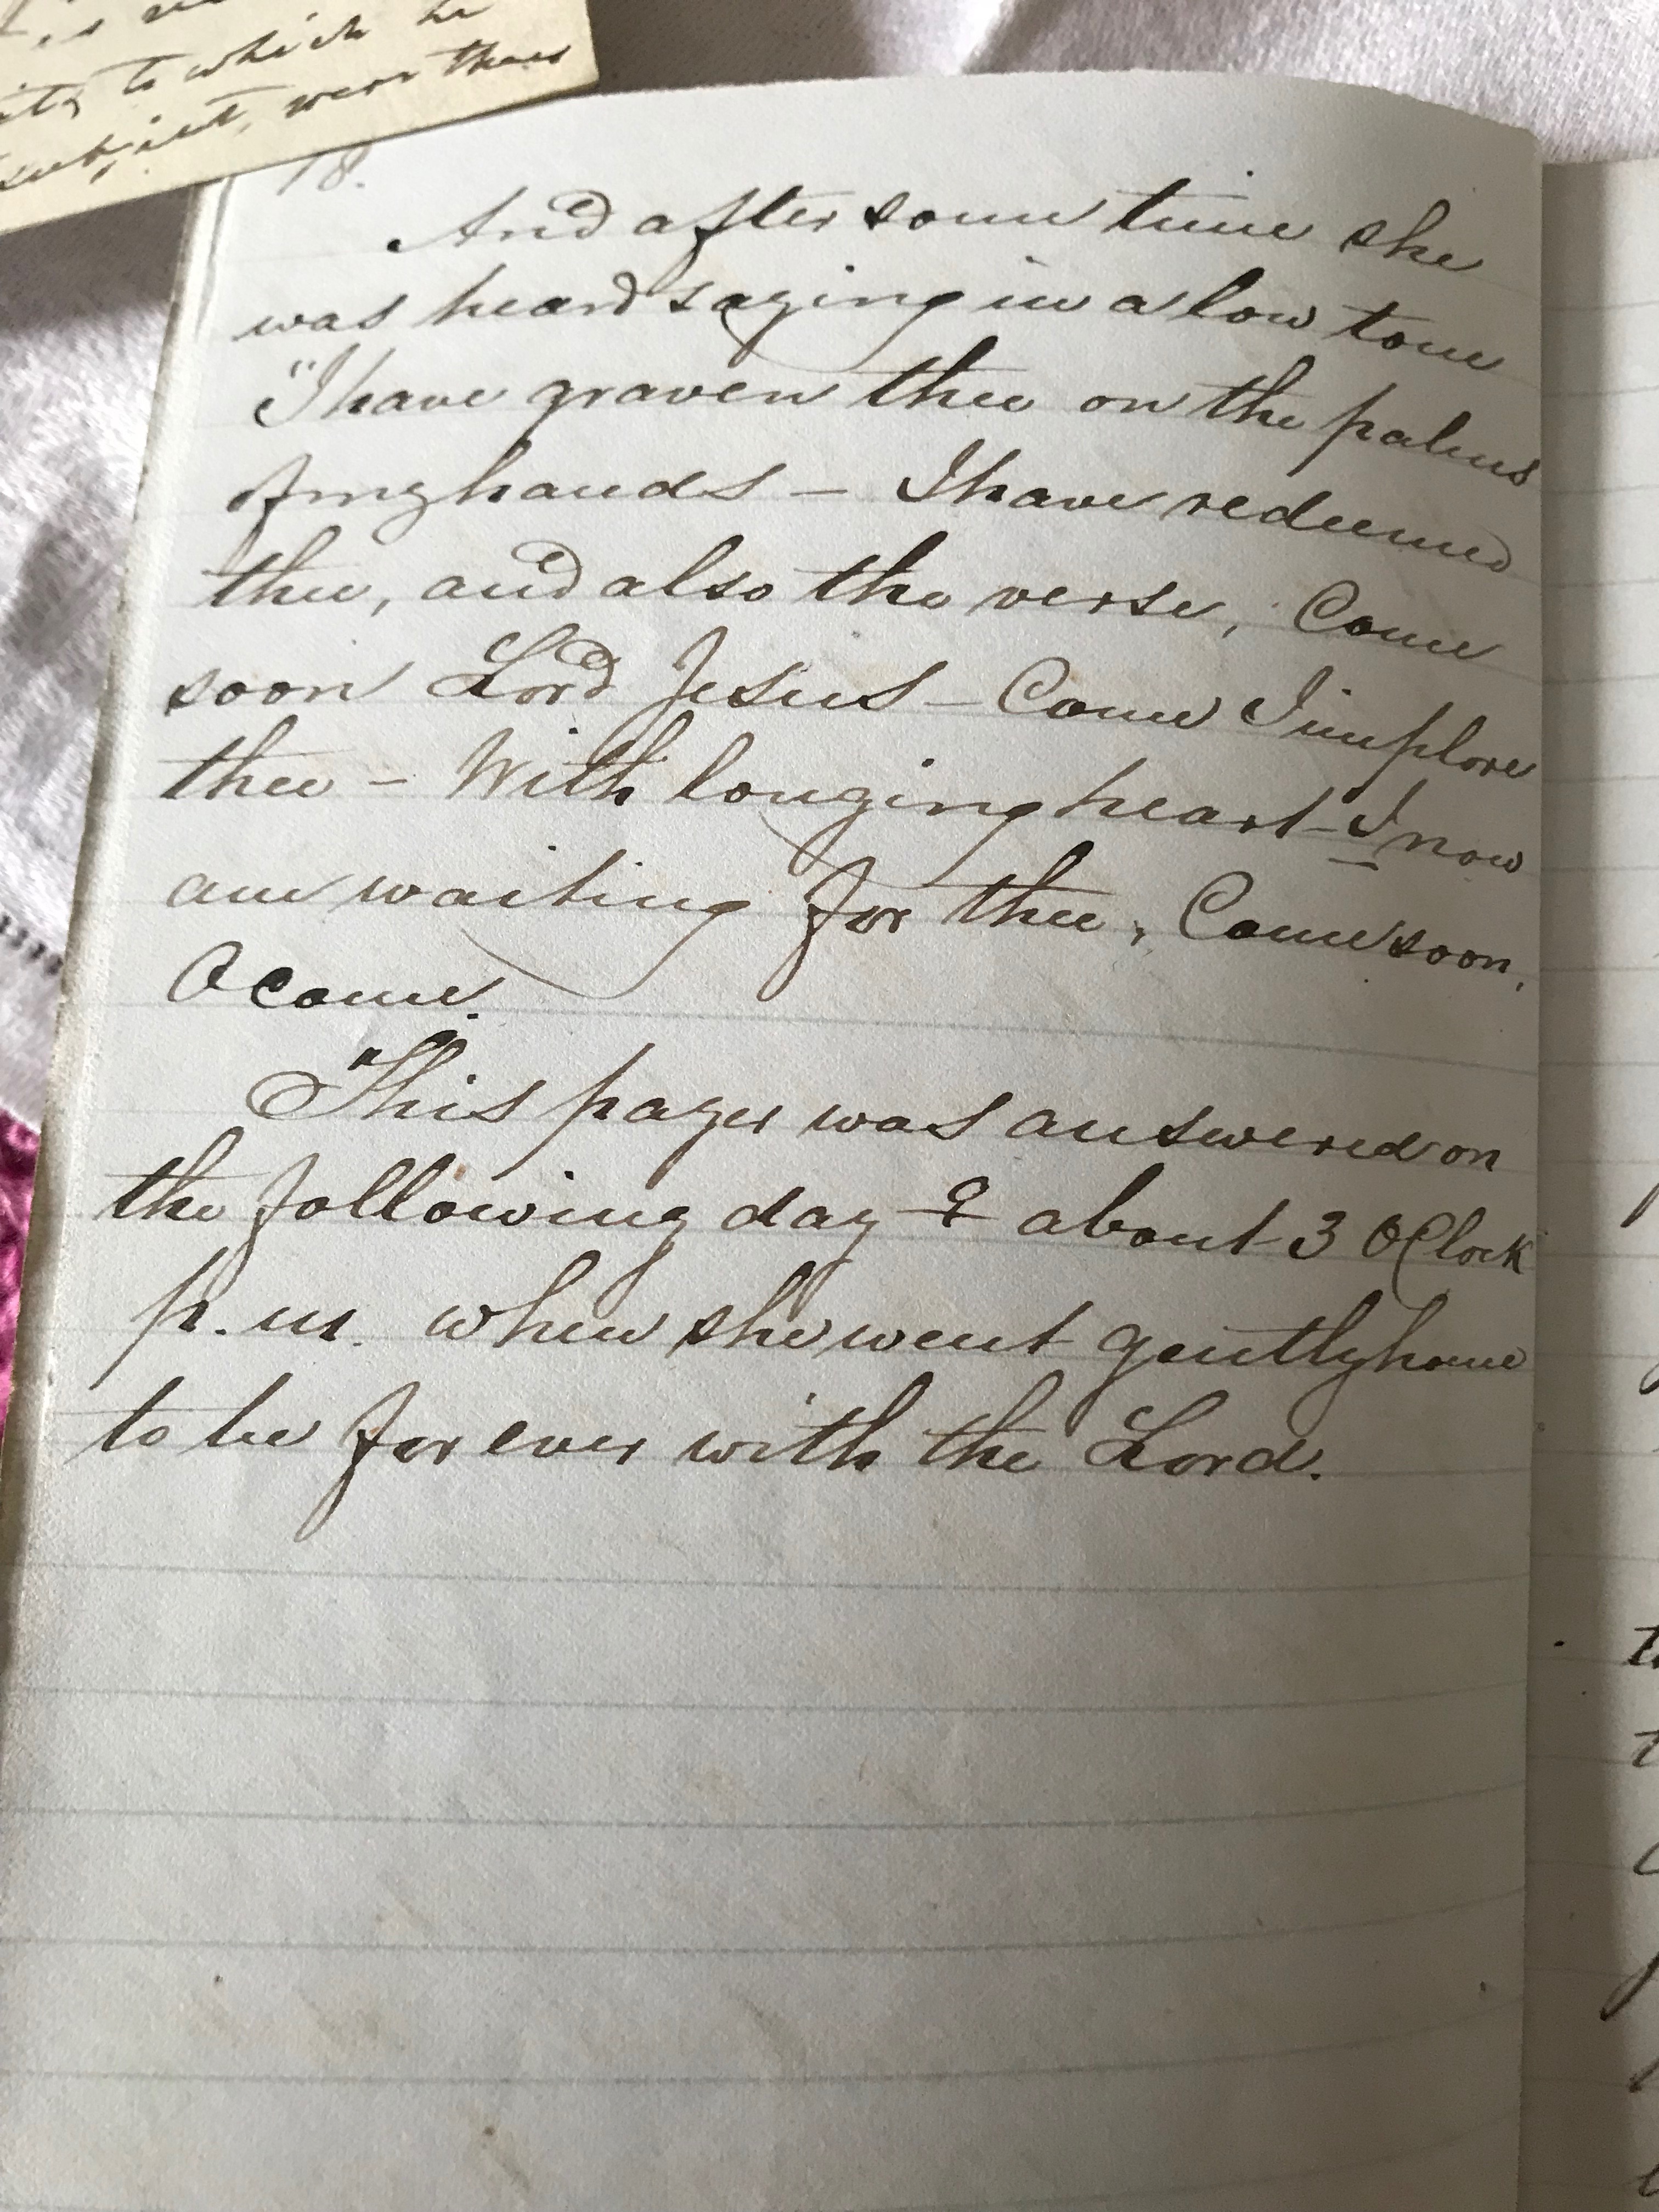 to which he
subject, were thus
18.
And after some time she
was heard saying in a low tone
"I have graven thee on the palms
of my hands – I have redeemed
thee, and also the verse, Come
soon Lord Jesus – Come I implore
thee – With longing heart – I now
am waiting for thee, Come soon,
O come.
"This payer was answered on
the following day & about 3 OClock
p.m. when she went gently home
to be for ever with the Lord.